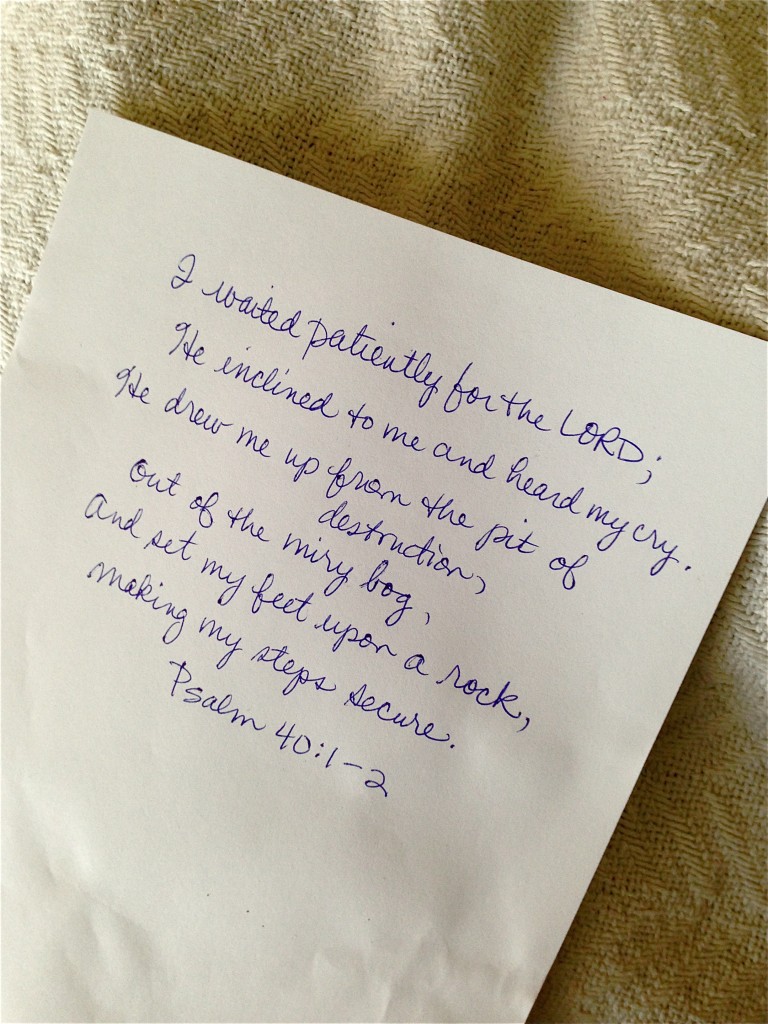 I waited patiently for the LORD;
He inclined to me and heard my cry.
He drew me up from the pit of
destruction,
out of the miry bog,
and set my feet upon a rock,
making my steps secure.
Psalm 40:1-2